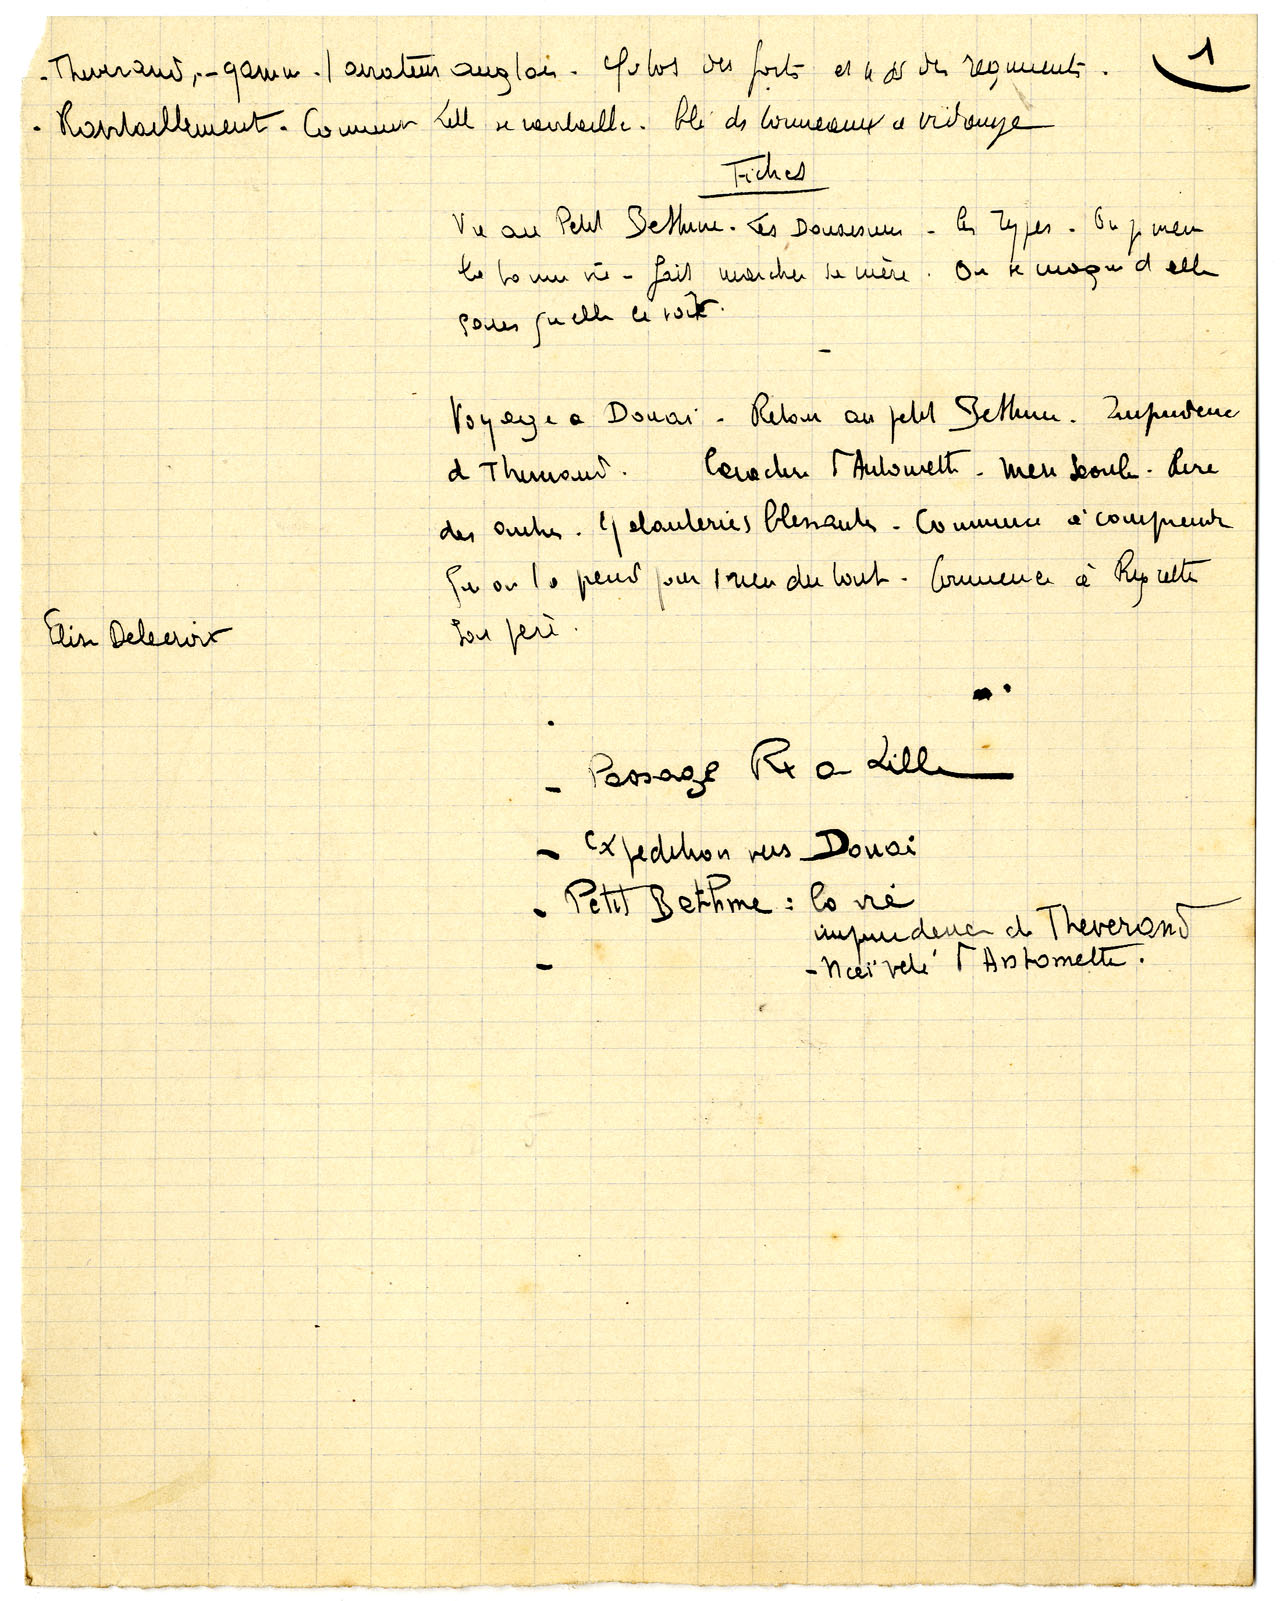 1
- Theverand, -- gamin - l'aviateur anglais. Photos des forts et n os des régiments.
- Ravitaillement. Comment Lille se ravitaille. Blé ds tonneaux a vidange
Fiches
Vie au Petit Bethune. Les Danseuses - les Types. On y mene
la bonne vie - fait marcher la mère. On se moque d'elle
sans qu'elle le voit.
Voyage a Douai - Retour au petit Bethune. Imprudence
d Theverand. Caractere d'Antoinette - mère seule. Rire
des autres. Galanteries blessantes - Commence à comprendre
qu on la prend pour rien du tout - Commence à Regretter
Elise Delacroix
son père.
- Passage Rx a Lille
- Expedition vers Douai
- Petit Bethune : la vie
imprudence de Theverand
- Naïveté d'Antoinette.